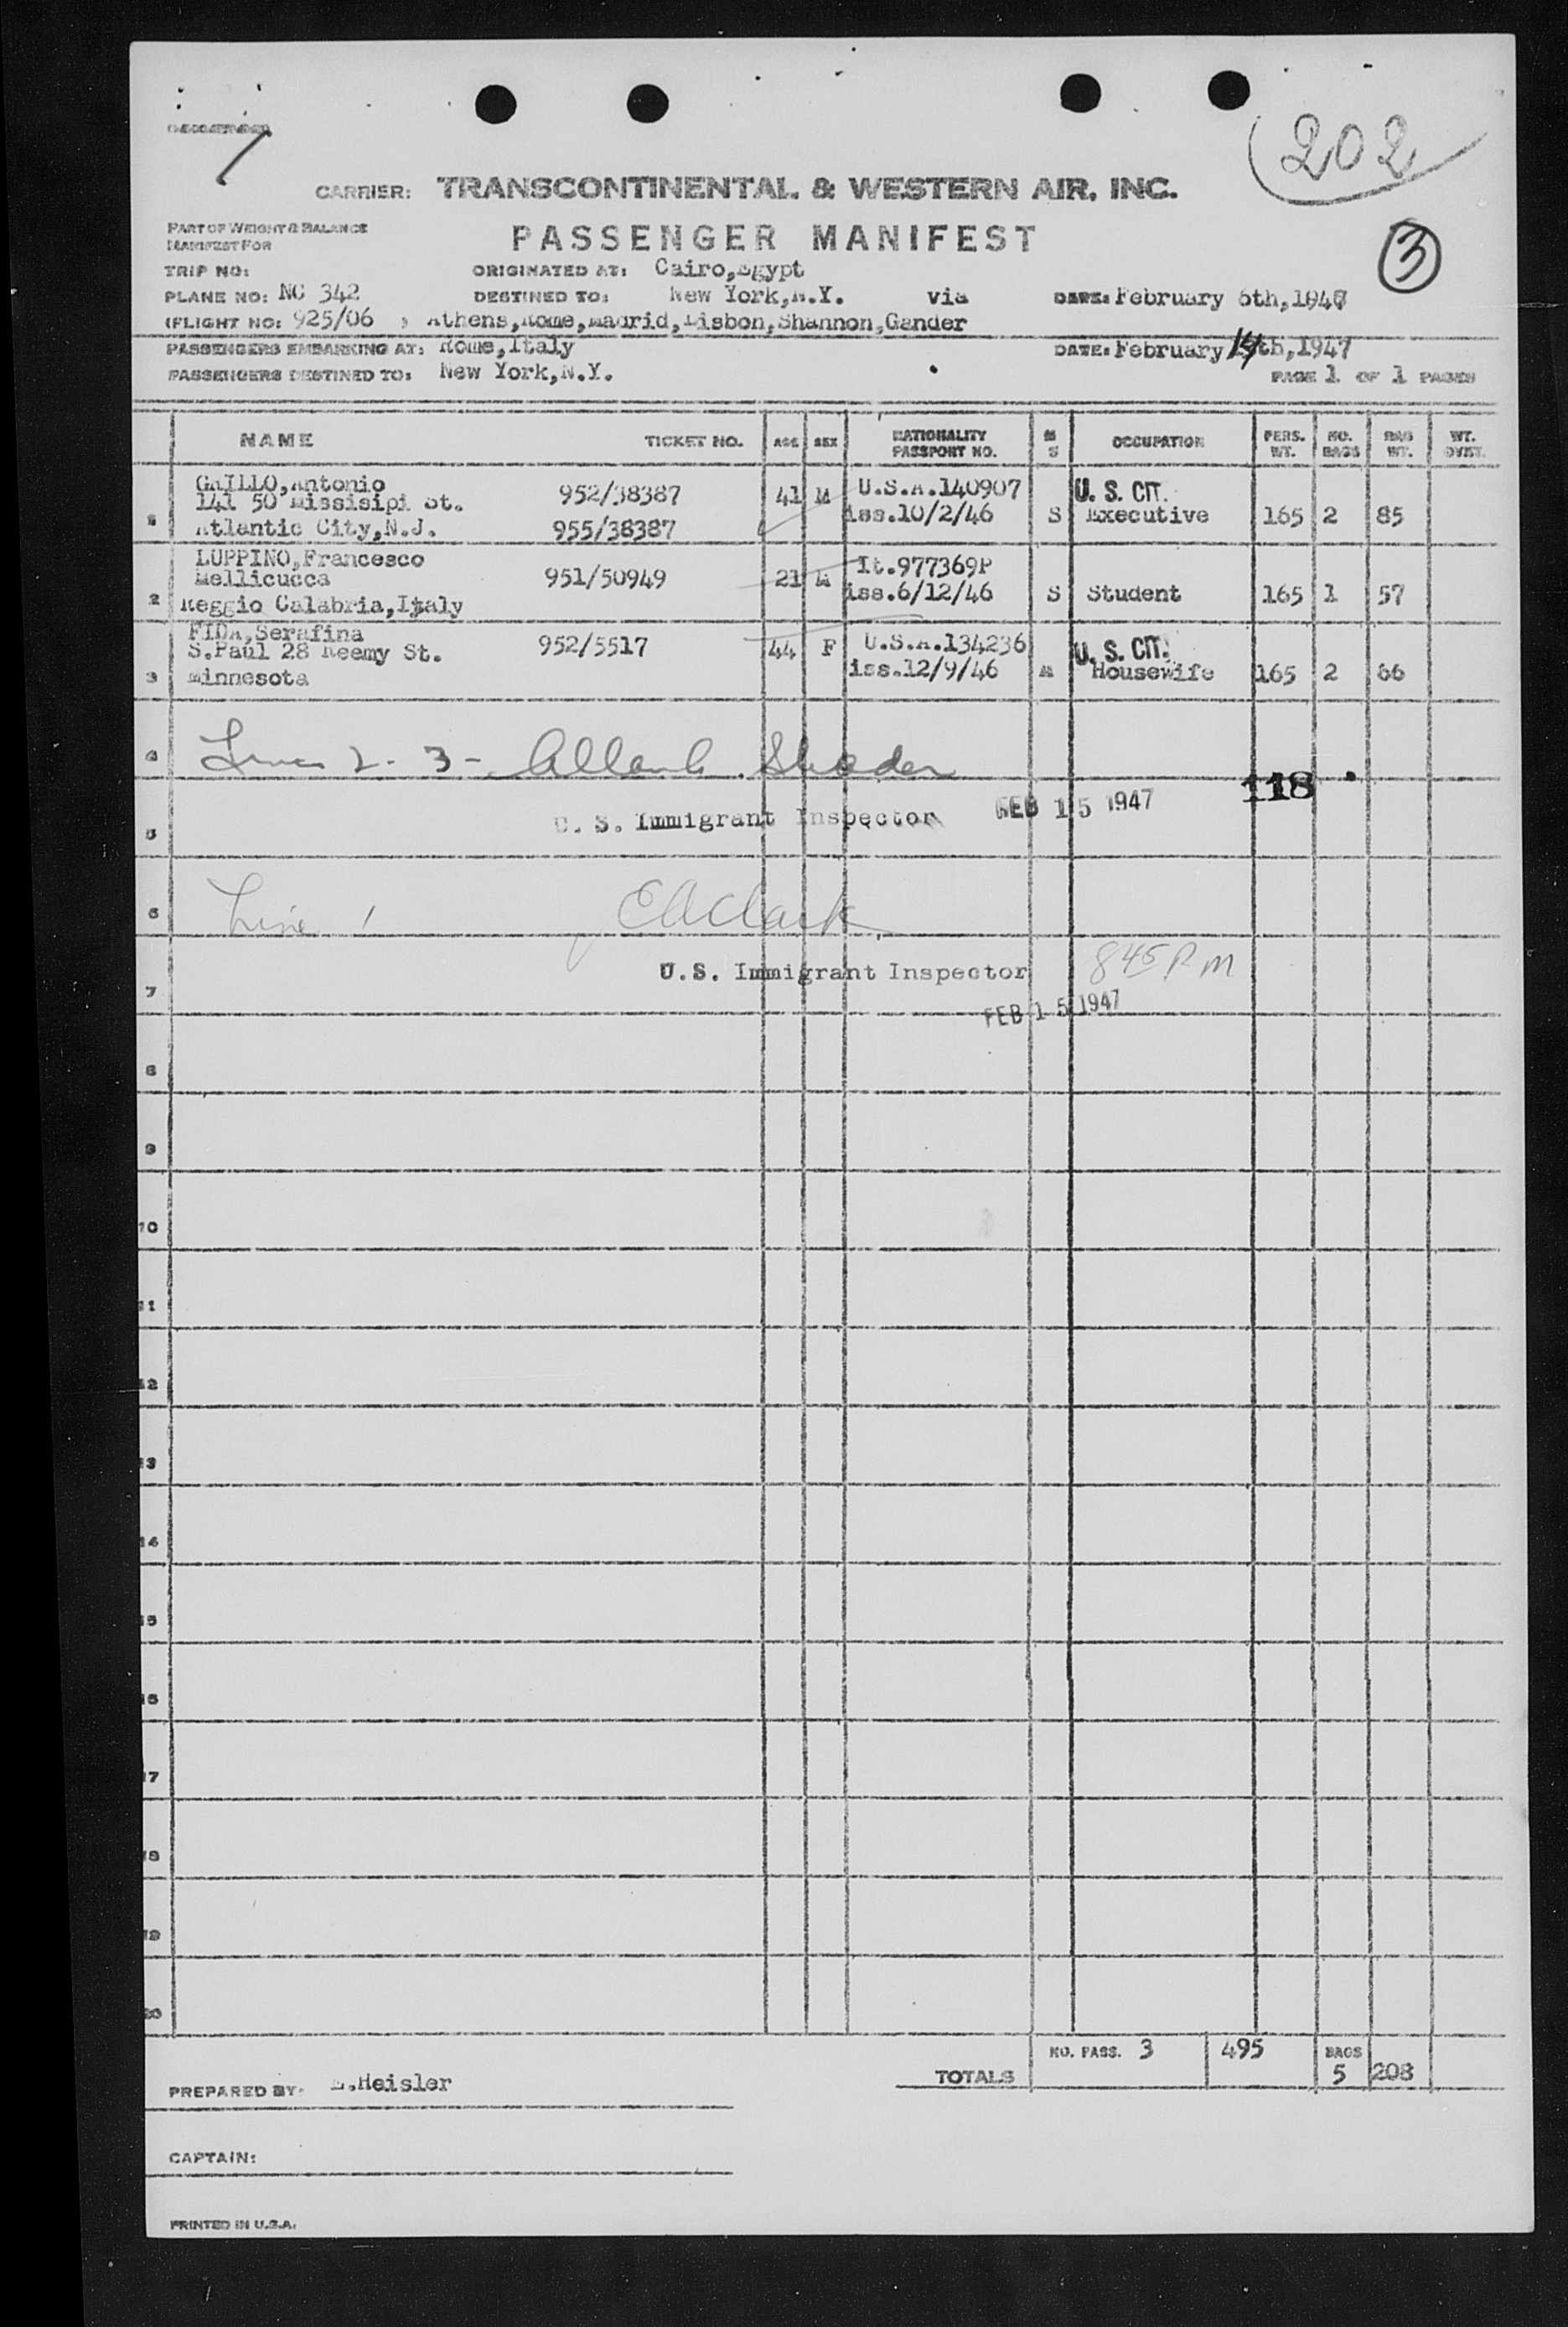 202
CARRIER: TRANSCONTINENTAL & WESTERN AIR, INC.
PART OF WEIGHT & BALANCE
MANIFEST FOR
PASSENGER MANIFEST
3
TRIP NO:
ORIGINATED AT: Cairo,Egypt
PLANE NO: NC 342
DESTINED TO: New York,N.Y. via
DATE: February 6th,1947
(FLIGHT NO: 925/06 ) Athens,Rome,Madrid,Lisbon,Shannon,Gander
PASSENGERS EMBARKING AT: Rome,Italy
DATE: February 14th,1947
PASSENGERS DESTINED TO: New York,N.Y.
PAGE 1 OF 1 PAGES
NAME TICKET NO. AGE SEX NATIONALITY PASSPORT NO. M S OCCUPATION PERS. WT. NO. BAGS BAG WT. WT. OVST.
GAILLO,Antonio
141 50 Missisipi St. 952/38387 41 M U.S.A.140907 U. S. CIT.
1 Atlantic City,N.J. 955/38387 iss.10/2/46 S Executive 165 2 85
LUPPINO,Francesco
Mellicucca 951/50949 21 M It.977369P
2 Reggio Calabria,Italy iss.6/12/46 S Student 165 1 57
FIDA,Serafina
S.Paul 28 Reemy St. 952/5517 44 F U.S.A.134236 U. S. CIT.
3 Minnesota iss.12/9/46 M Housewife 165 2 66
4 Lines 2 - 3 -
118
5 U. S. Immigrant Inspector FEB 15 1947
6 Line 1 EAClark
7 U.S. Immigrant Inspector 845 PM
FEB 15 1947
8
9
10
11
12
13
14
15
16
17
18
19
20
NO. PASS. 3 495 BAGS
TOTALS 5 208
PREPARED BY: Heisler
CAPTAIN:
PRINTED IN U.S.A.